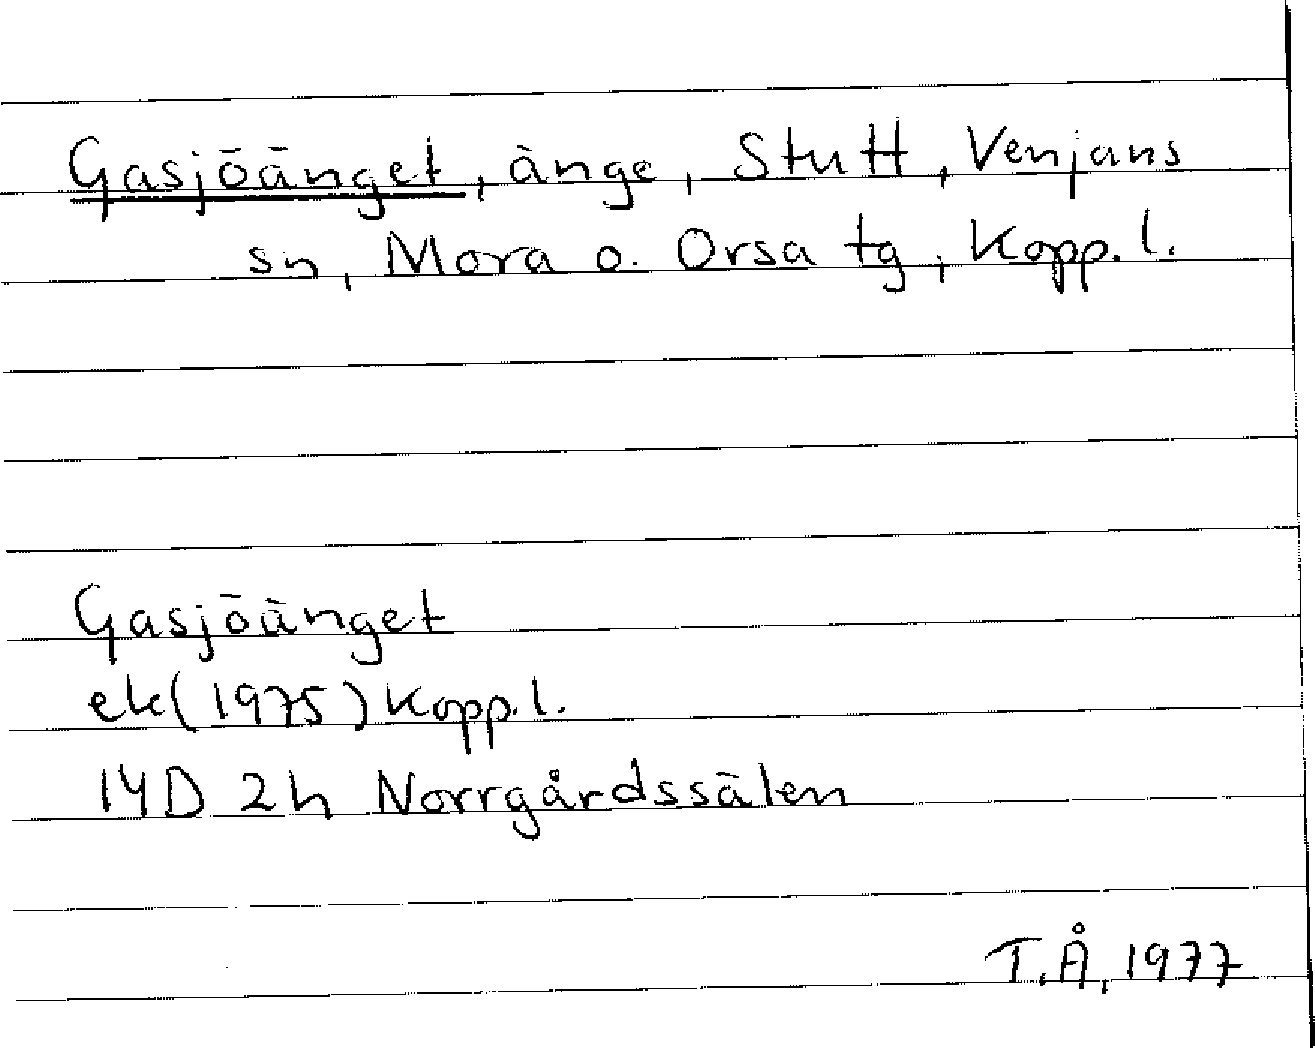 Gasjöänget, änge, Stutt, Venjans
sn, Mora o. Orsa tg, Kopp. l.
Gasjöänget
ek(1975) Kopp. l.
14D 2h Norrgårdssälen
T.Å, 1977